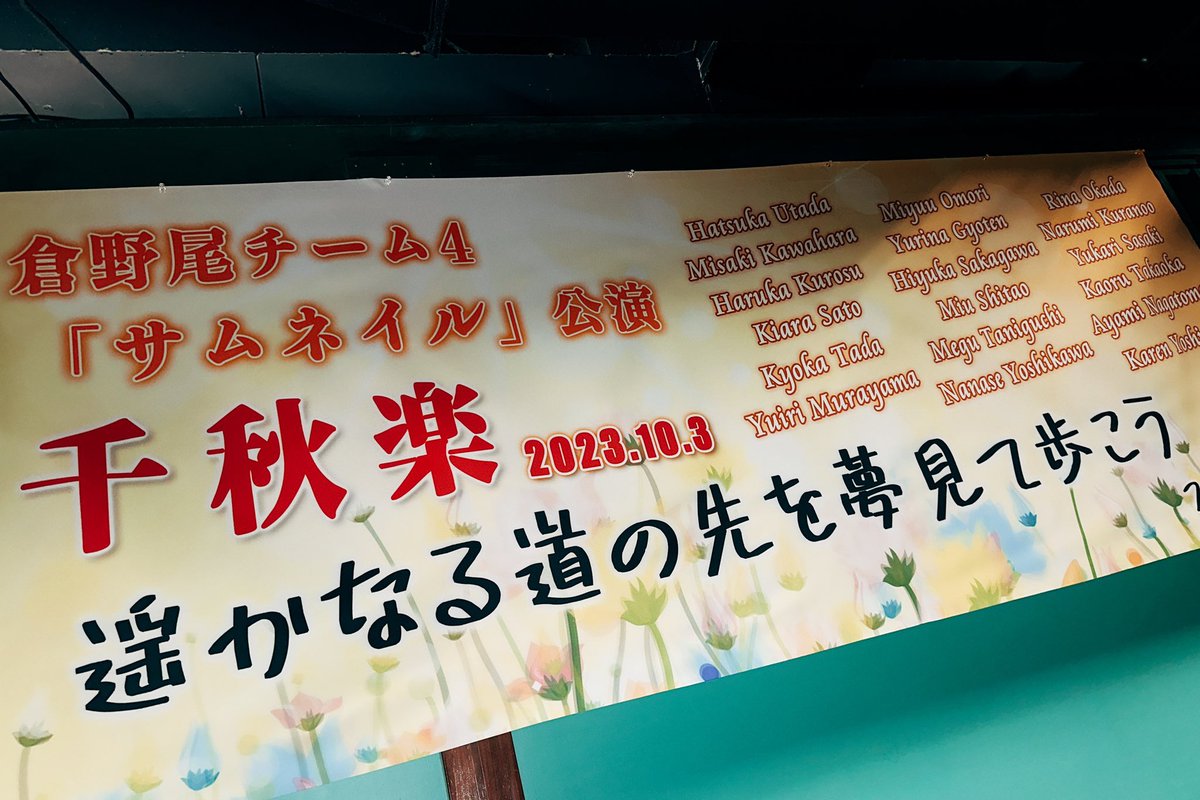 倉野尾チーム4
「サムネイル」公演
千秋楽 2023.10.3
Hatsuka Utada
Misaki Kawahara
Haruka Kurosu
Kiara Sato
Kyoka Tada
Yuiri Murayama
Miyuu Omori
Yurina Gyoten
Hiyuka Sakagawa
Miu Shitao
Megu Taniguchi
Nanase Yoshikawa
Rina Okada
Narumi Kuranoo
Yukari Sasaki
Kaoru Takaoka
Ayami
Karen
遥かなる道の先を夢見て歩こう